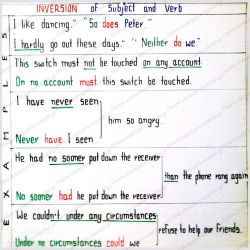 INVERSION of Subject and Verb
I like dancing." "So does Peter."
I hardly go out these days." "Neither do we."
This switch must not be touched on any account.
On no account must this switch be touched.
I have never seen
him so angry.
Never have I seen
He had no sooner put down the receiver
then the phone rang again
No sooner had he put down the receiver
We couldn't under any circumstances
refuse to help our friends.
Under no circumstances could we
EXAMPLES